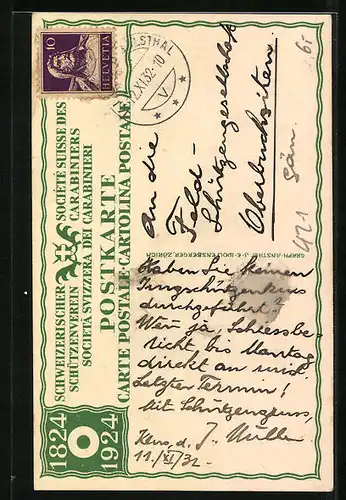 10
HELVETIA
BALSTHAL
12.XI.32-10
V
SCHWEIZERISCHER
SCHÜTZENVEREIN
SOCIÉTÉ SUISSE DES
CARABINIERS
SOCIETÀ SVIZZERA DEI CARABINIERI
POSTKARTE
CARTE POSTALE-CARTOLINA POSTALE
1824
1924
An die
Feld-
Schützengesellschaft
Oberbuchsiten
Gäu.
421
GRAPH. ANSTALT J. E. WOLFENSBERGER ZÜRICH
Haben Sie keinen
Jungschützenkurs
durchgeführt?
Wenn ja, Schiessbe-
richt bis Montag
direkt an mich
Letzter Termin!
Mit Schützengruss,
J. Müller
11./XI/32